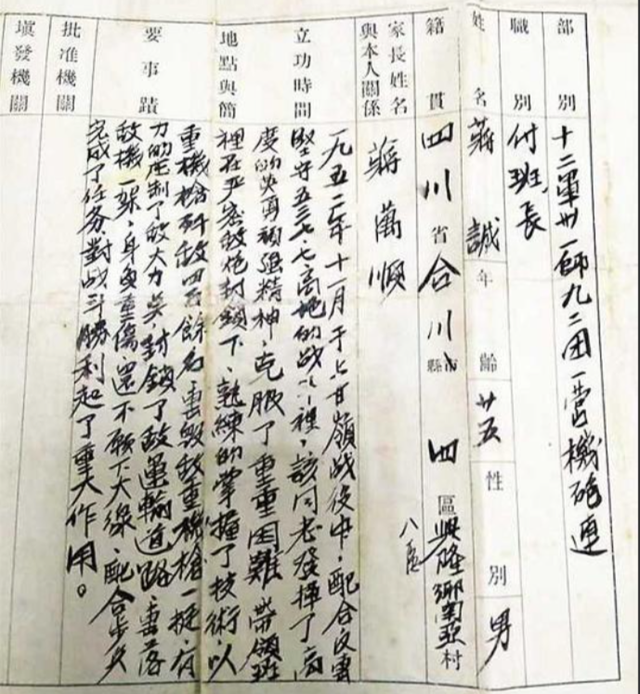 部別 十二軍卅一師九二团一营機砲連
職別 付班長
姓名 蒋誠 年齡 廿五 性別 男
籍貫 四川省合川市縣 四區興隆鄉南亞村
八區
家長姓名與本人關係 蒋萬順
立功時間地點與簡要事蹟
一九五二年十一月于上甘嶺战役中，配合反
坚守五三七·七高地的战斗裡，该同志發揮了高
度的英勇頑强精神，克服了重重困難 带領班
裡在严密敌炮封鎖下，熟練的掌握了技術，以
重機槍歼敌四百餘名，击毁敌重機槍一挺，有
力的压制了敌火力点，封鎖了敌運輸道路，击落
敌機一架，身負重傷，還不願下火線，配合步兵
完成了任务，對战斗勝利起了重大作用。
批准機關
填發機關